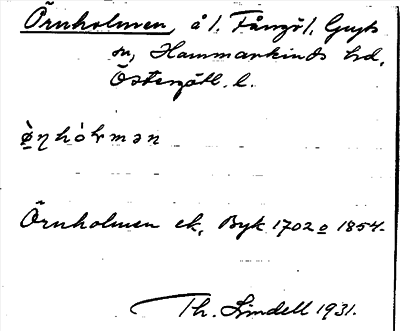 Örnholmen, å l. Fångö l. Gryts
sn, Hammarkinds hd,
Östergötl. l.
Örnholmen ek, Byk 1702 o 1854.
Th. Lindell 1931.